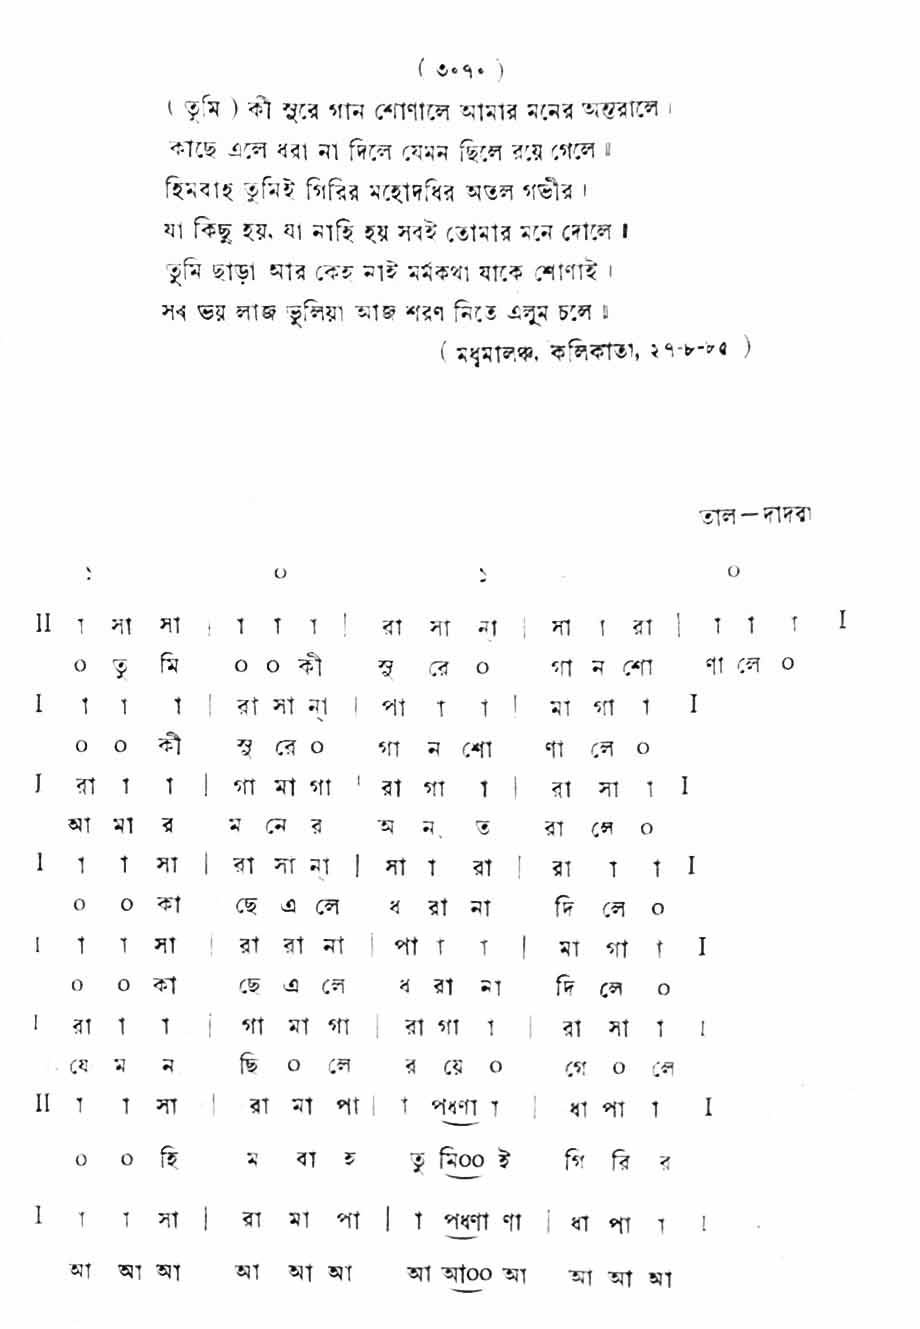 ( ৩০৭০ )
( তুমি ) কী সুরে গান শোণালে আমার মনের অন্তরালে ।
কাছে এলে ধরা না দিলে যেমন ছিলে রয়ে গেলে ॥
হিমবাহ তুমিই গিরির মহোদধির অতল গভীর ।
যা কিছু হয়, যা নাহি হয় সবই তোমার মনে দোলে ॥
তুমি ছাড়া আর কেহ নাই মর্মকথা যাকে শোণাই ।
সব ভয় লাজ ভুলিয়া আজ শরণ নিতে এলুম চলে ॥
( মধুমালঞ্চ, কলিকাতা, ২৭-৮-৮৫ )
তাল — দাদরা
১ ০ ১ ০
II া সা সা | া া া | রা সা না্ | সা া রা | া া া I
০ তু মি ০ ০ কী সু রে ০ গা ন শো ণা লে ০
I া া া | রা সা না্ | পা া া | মা গা া I
০ ০ কী সু রে ০ গা ন শো ণা লে ০
I রা া া | গা মা গা | রা গা া | রা সা া I
আ মা র ম নে র অ ন্ ত রা লে ০
I া া সা | রা সা না্ | সা া রা | রা া া I
০ ০ কা ছে এ লে ধ রা না দি লে ০
I া া সা | রা রা না | পা া া | মা গা া I
০ ০ কা ছে এ লে ধ রা না দি লে ০
I রা া া | গা মা গা | রা গা া | রা সা া I
যে ম ন ছি ০ লে র য়ে ০ গে ০ লে
II া া সা | রা মা পা | া পধণা া | ধা পা া I
০ ০ হি ম বা হ তু মি০০ ই গি রি র
I া া সা | রা মা পা | া পধণা ণা | ধা পা া I
আ আ আ আ আ আ আ আ০০ আ আ আ আ